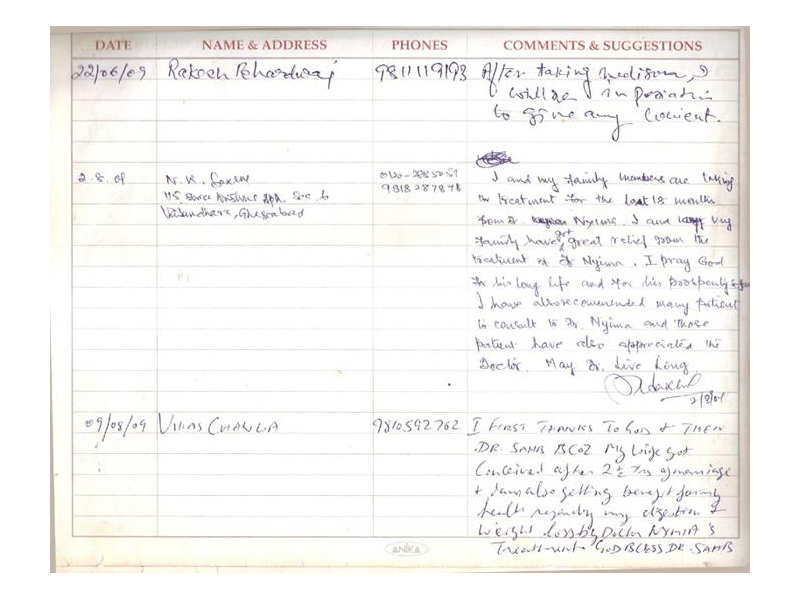 DATE NAME & ADDRESS PHONES COMMENTS & SUGGESTIONS
22/06/09 Rakesh Bhardwaj 9811119193 After taking medison, I
will be in position
to give any
2.8.09 N.K. 0120-
9818287878
I and my family members are taking
the treatment for the last 18 months
from Dr. Nyima. I and my
family have got great relief from the
treatment of Dr Nyima. I pray God
for his long life and for his prosperity
I have also recomended many patient
to consult to Dr. Nyima and those
patient have also appreciated the
Doctor. May Dr. Live Long.
Vasundhara, Ghaziabad
2/8/09
09/08/09 VIKAS CHAWLA 9810592762 I FIRST THANKS TO GOD & THEN
DR. SAHB BCOZ My wife got
Conceived after 2½ Yrs of marriage
& I am also getting benefit for my
health regarding my digestion &
Weight loss by Doctor NYMIA'S
Treatment GOD BLESS DR. SAHB
ANIKA